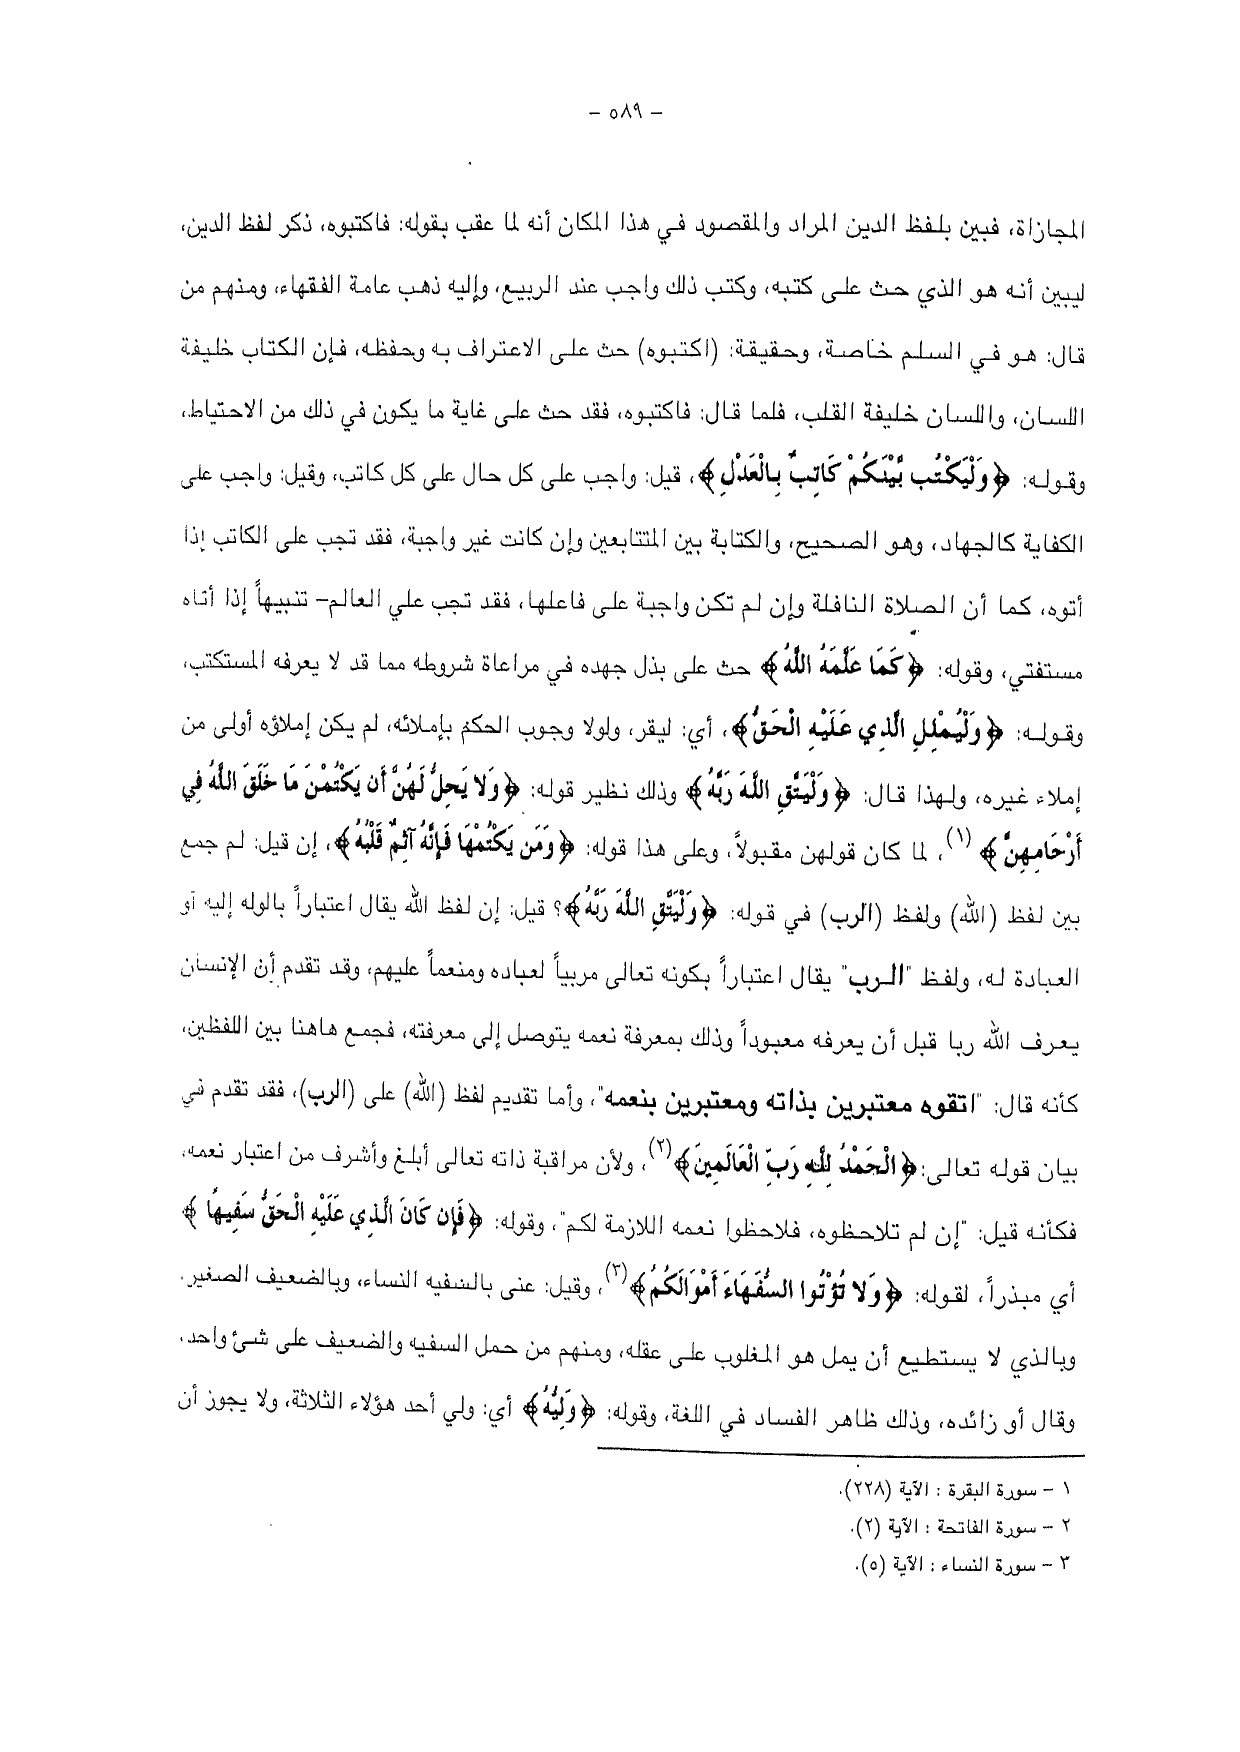 – ٥٨٩ –
المجازاة، فبين بلفظ الدين المراد والمقصود في هذا المكان أنه لما عقب بقوله: فاكتبوه، ذكر لفظ الدين،
ليبين أنه هو الذي حث على كتبه، وكتب ذلك واجب عند الربيع، وإليه ذهب عامة الفقهاء، ومنهم من
قال: هو في السلم خاصة، وحقيقة: (اكتبوه) حث على الاعتراف به وحفظه، فإن الكتاب خليفة
اللسان، واللسان خليفة القلب، فلما قال: فاكتبوه، فقد حث على غاية ما يكون في ذلك من الاحتياط،
وقوله: ﴿وَلْيَكْتُب بَّيْنَكُمْ كَاتِبٌ بِالْعَدْلِ﴾، قيل: واجب على كل حال على كل كاتب، وقيل: واجب على
الكفاية كالجهاد، وهو الصحيح، والكتابة بين المتتابعين وإن كانت غير واجبة، فقد تجب على الكاتب إذا
أتوه، كما أن الصلاة النافلة وإن لم تكن واجبة على فاعلها، فقد تجب علي العالم– تنبيهاً إذا أتاه
مستفتي، وقوله: ﴿كَمَا عَلَّمَهُ اللَّهُ﴾ حث على بذل جهده في مراعاة شروطه مما قد لا يعرفه المستكتب،
وقوله: ﴿وَلْيُمْلِلِ الَّذِي عَلَيْهِ الْحَقُّ﴾، أي: ليقر، ولولا وجوب الحكم بإملائه، لم يكن إملاؤه أولى من
إملاء غيره، ولهذا قال: ﴿وَلْيَتَّقِ اللَّهَ رَبَّهُ﴾ وذلك نظير قوله: ﴿وَلَا يَحِلُّ لَهُنَّ أَن يَكْتُمْنَ مَا خَلَقَ اللَّهُ فِي
أَرْحَامِهِنَّ﴾ (١)، لما كان قولهن مقبولاً، وعلى هذا قوله: ﴿وَمَن يَكْتُمْهَا فَإِنَّهُ آثِمٌ قَلْبُهُ﴾، إن قيل: لم جمع
بين لفظ (الله) ولفظ (الرب) في قوله: ﴿وَلْيَتَّقِ اللَّهَ رَبَّهُ﴾؟ قيل: إن لفظ الله يقال اعتباراً بالوله إليه أو
العبادة له، ولفظ "الرب" يقال اعتباراً بكونه تعالى مربياً لعباده ومنعماً عليهم، وقد تقدم أن الإنسان
يعرف الله ربا قبل أن يعرفه معبوداً وذلك بمعرفة نعمه يتوصل إلى معرفته، فجمع هاهنا بين اللفظين،
كأنه قال: "اتقوه معتبرين بذاته ومعتبرين بنعمه"، وأما تقديم لفظ (الله) على (الرب)، فقد تقدم في
بيان قوله تعالى: ﴿الْحَمْدُ لِلَّهِ رَبِّ الْعَالَمِينَ﴾(٢)، ولأن مراقبة ذاته تعالى أبلغ وأشرف من اعتبار نعمه،
فكأنه قيل: "إن لم تلاحظوه، فلاحظوا نعمه اللازمة لكم"، وقوله: ﴿فَإِن كَانَ الَّذِي عَلَيْهِ الْحَقُّ سَفِيهًا﴾
أي مبذراً، لقوله: ﴿وَلَا تُؤْتُوا السُّفَهَاءَ أَمْوَالَكُمُ﴾(٣)، وقيل: عنى بالسفيه النساء، وبالضعيف الصغير.
وبالذي لا يستطيع أن يمل هو المغلوب على عقله، ومنهم من حمل السفيه والضعيف على شئ واحد،
وقال أو زائده، وذلك ظاهر الفساد في اللغة، وقوله: ﴿وَلِيُّهُ﴾ أي: ولي أحد هؤلاء الثلاثة، ولا يجوز أن
١ – سورة البقرة : الآية (٢٢٨).
٢ – سورة الفاتحة : الآية (٢).
٣ – سورة النساء : الآية (٥).